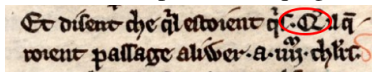 Et disent che q̃l estoient q̃s. Q̃l q̃
roient passage aliwer · a · iiij · chl̃rs ·